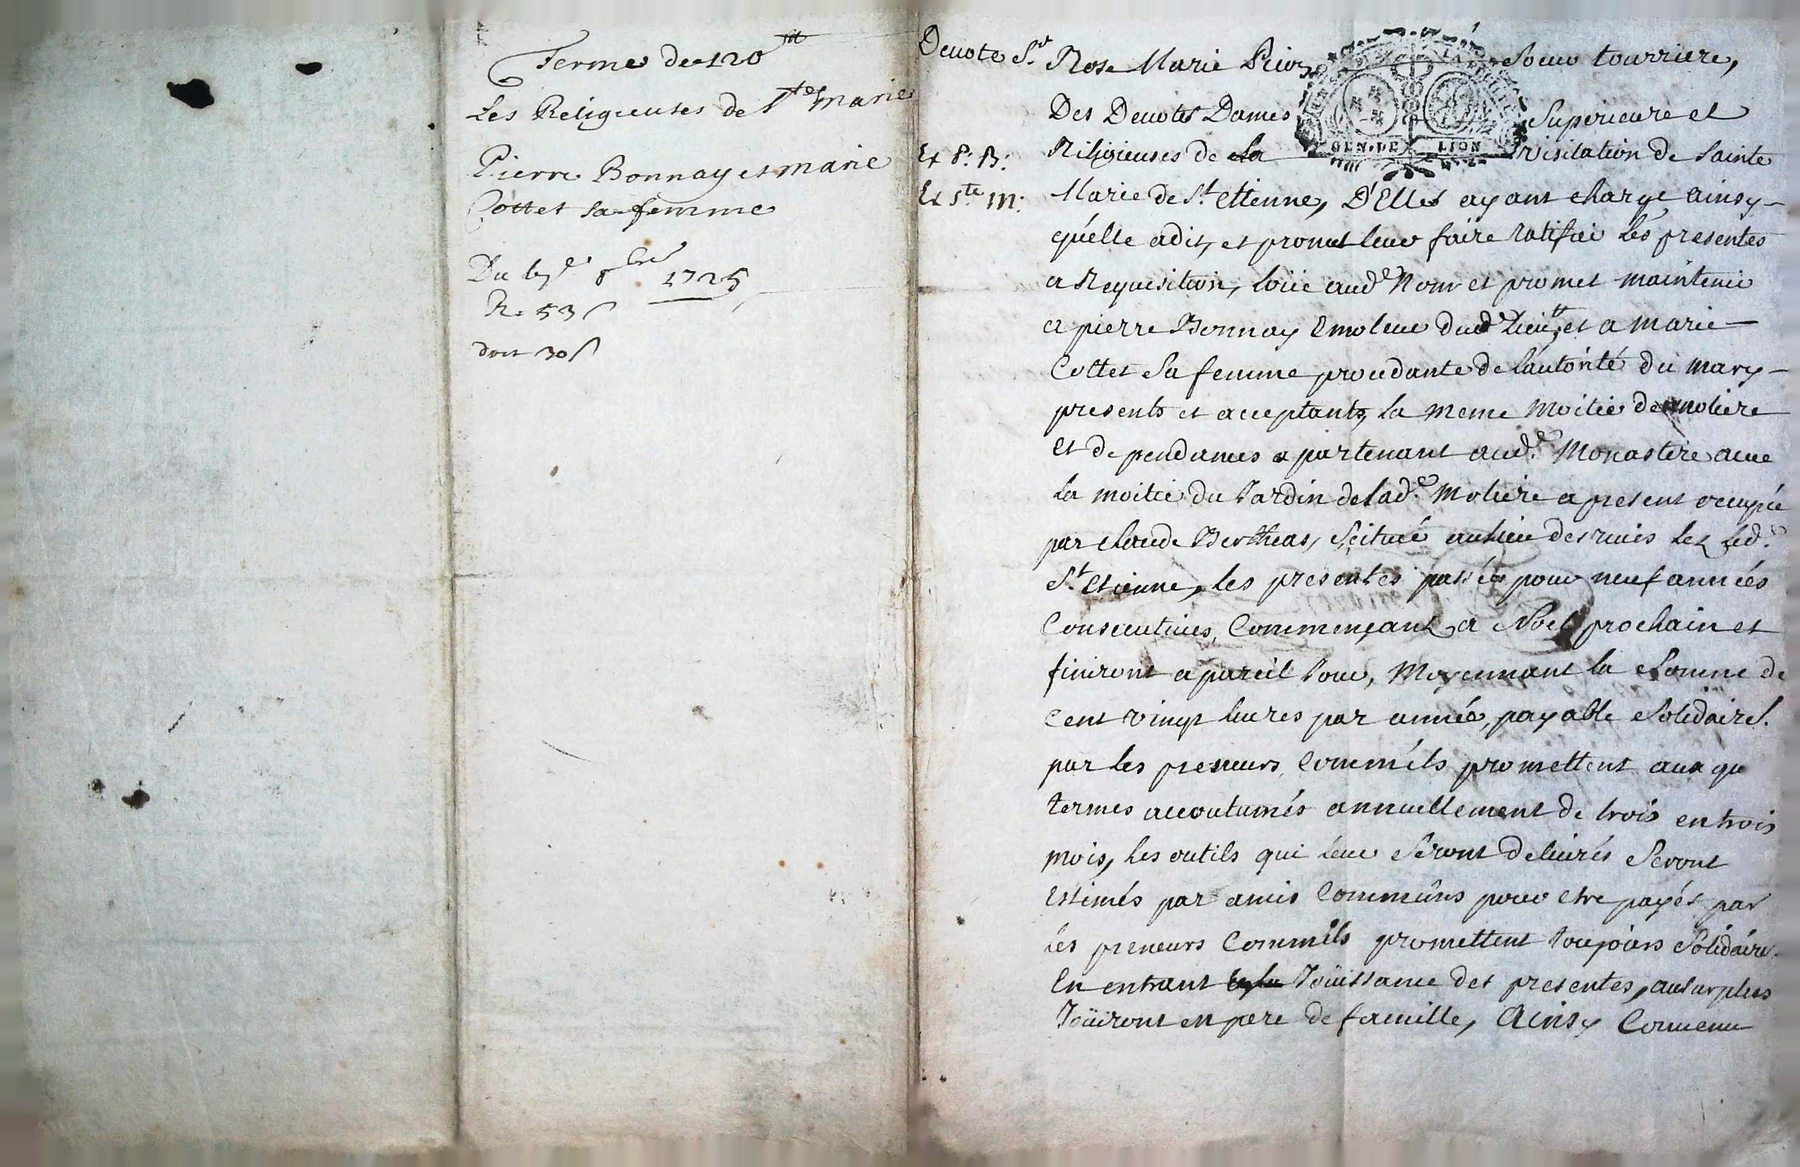 Ferme de 120 ₶
Les Religieuses de Ste marie
Pierre Bonnay et marie
Cottet sa femme
Du 8bre 1725
R. 53 s
doit 30 s
Devote Sr Rose Marie Soeur tourriere,
Des Devotes Dames Superieure et
Religieuses de la visitation de sainte
Marie de St. Etienne, D'Elles ayant charge ainsy
qu'elle a dit, et promet leur faire ratifier les presentes
a Requisition, loüe aud. Nom et promet maintenir
a pierre Bonnay Emoleur dud. lieu, et a marie
Cottet sa femme procedante de l'autorité du mary
presents et acceptants, la meme moitié de moliere
et dependances apartenant aud. Monastere avec
la moitié du Jardin de lad. moliere a present occupée
par claude Bertheas, scituée au lieu des rives les led.
St. Etienne, les presentes passées pour neuf années
Consecutives, Commençant a Noel prochain et
finiront a pareil Jour, Moyennant la somme de
Cent vingt livres par année, payable solidaire.
par les preneurs Comm'ils promettent aux
termes accoutumés annuellement de trois en trois
mois, les outils qui leur seront delivrés seront
Estimés par amis Communs pour etre payés par
les preneurs Comm'ils promettent toujours solidaire.
En entrant Joüissance des presentes, au surplus
Joüiront en pere de famille, Ainsy Convenu
GEN. DE LION